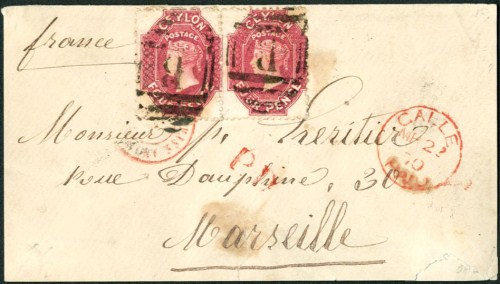 CEYLON CEYLON
POSTAGE POSTAGE
FOURPENCE FOURPENCE
B B
france
GALLE
22
PAID
Monsieur p. Heritier
Rue Dauphine, 30
Marseille